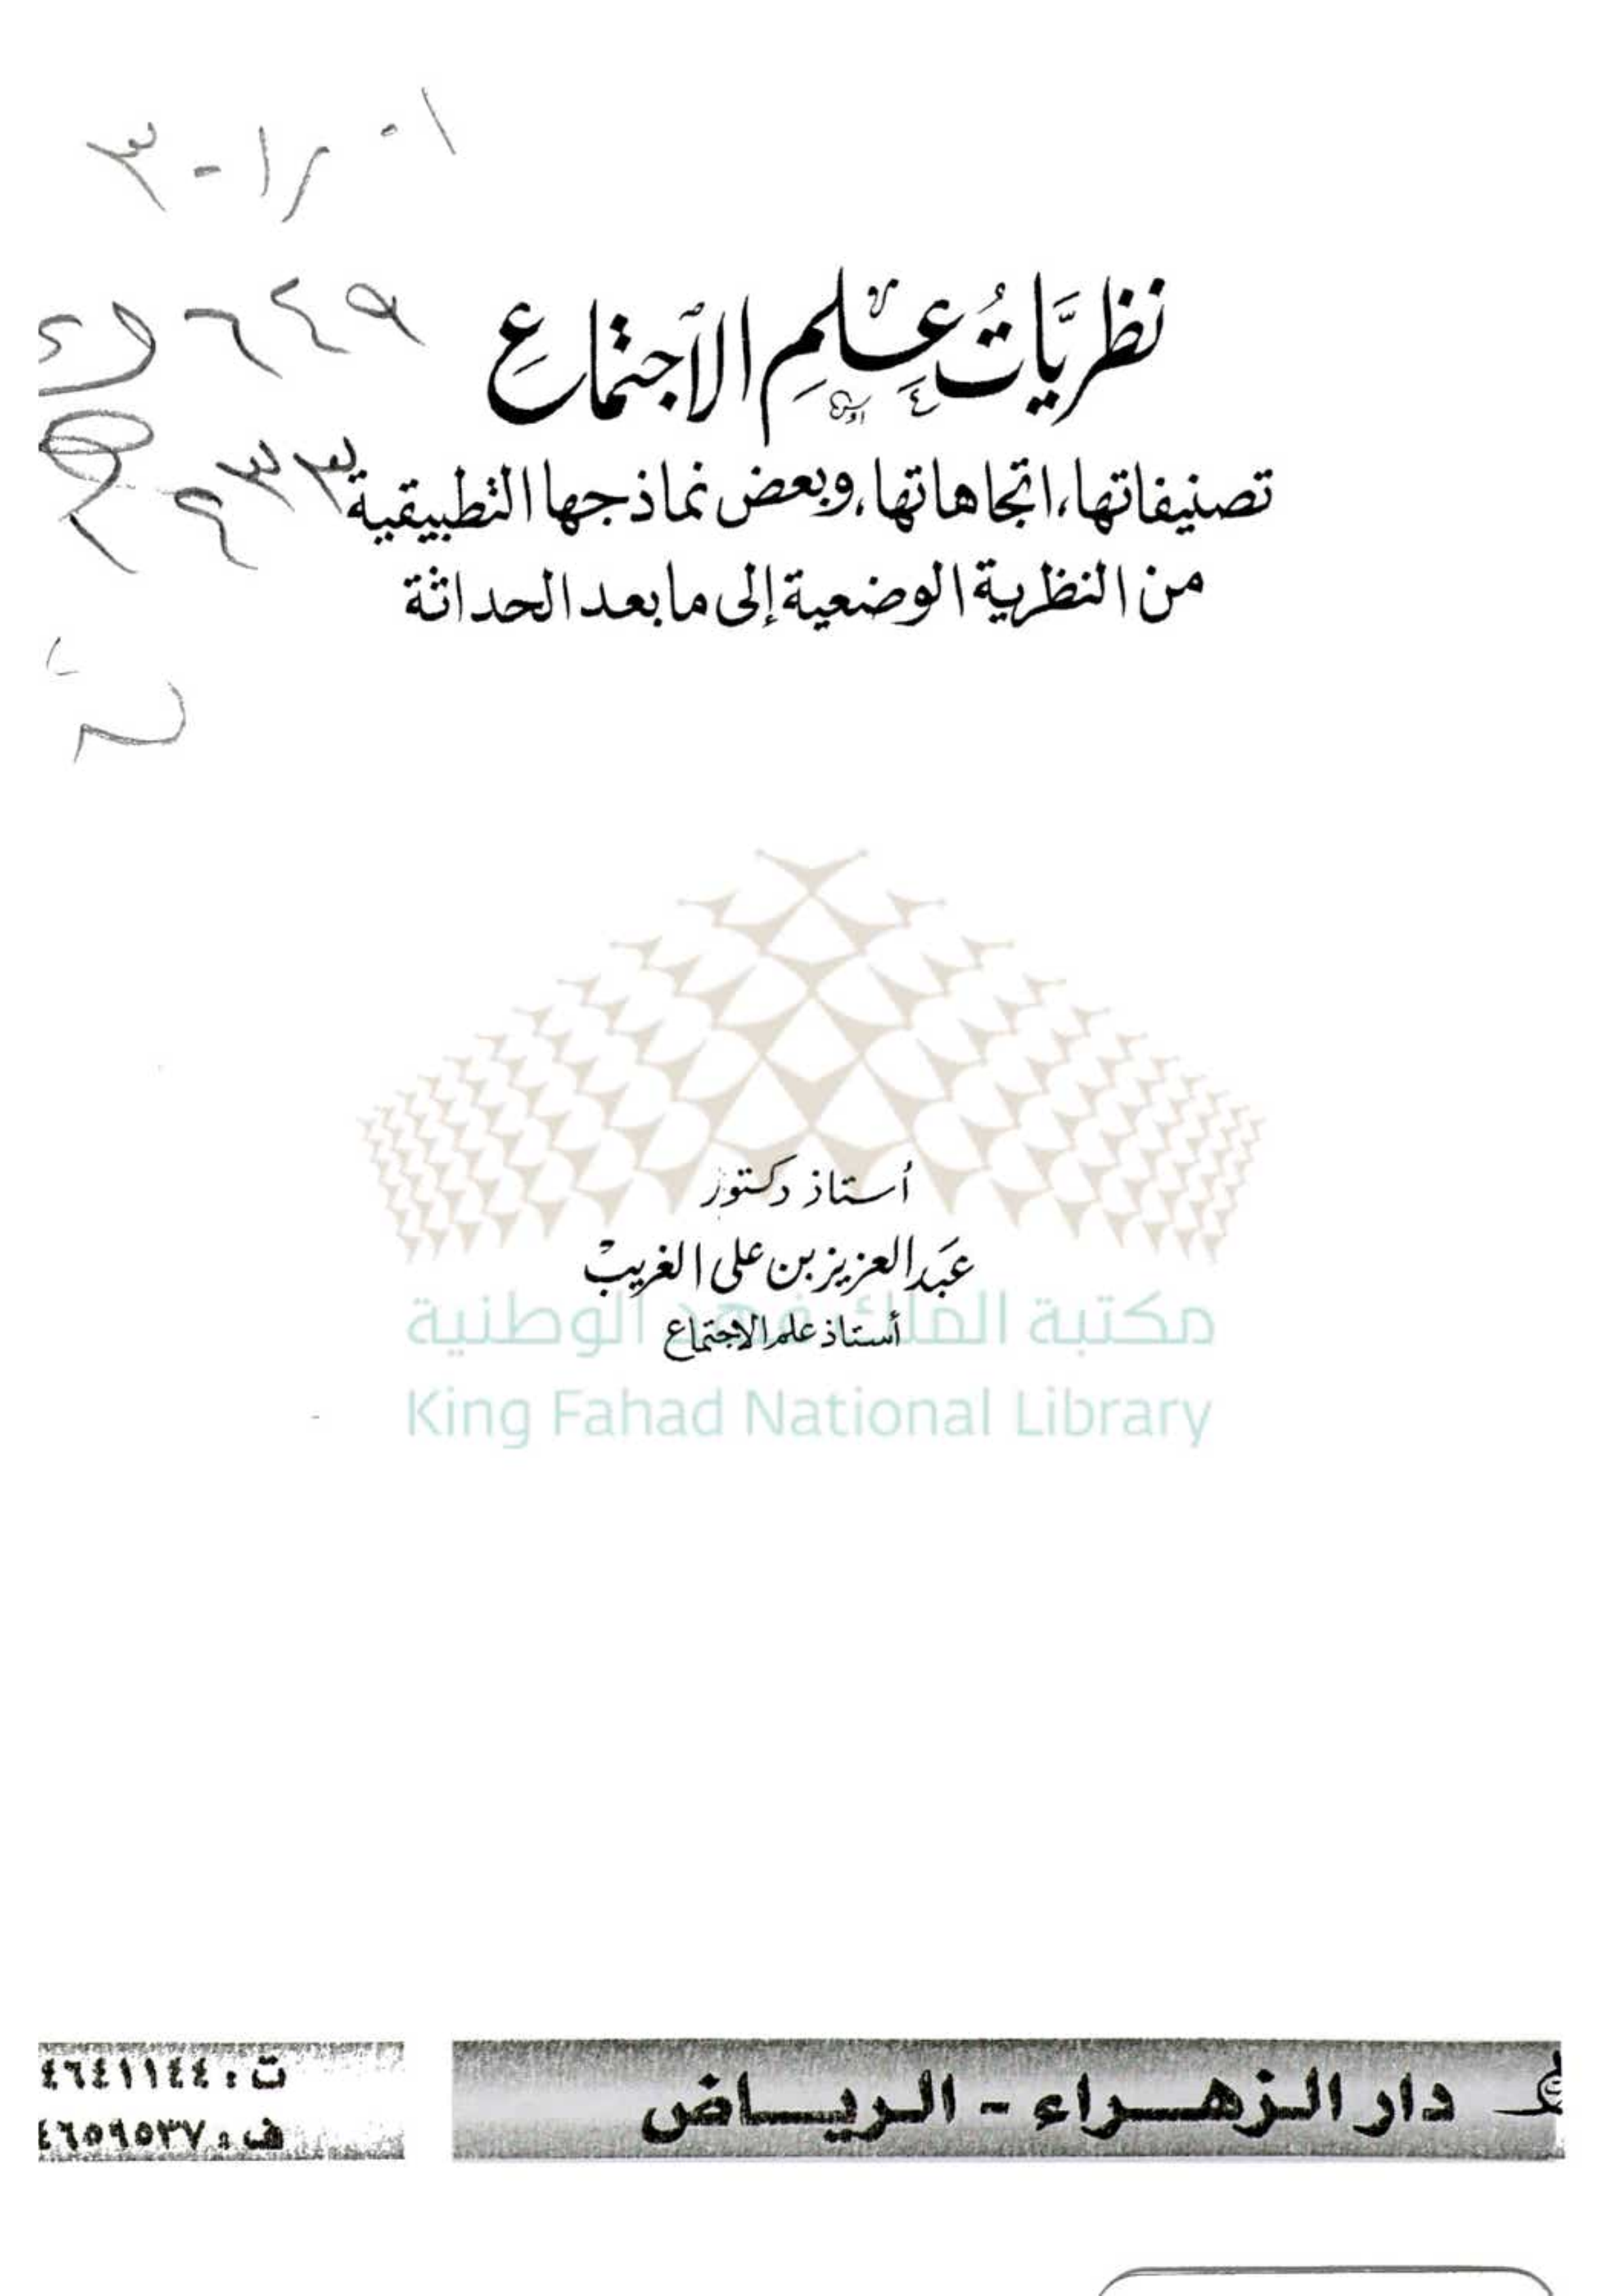 ٣٠١ر٠١
نظريَّاتُ علمِ الاجتماعِ
تصنيفاتها، اتجاهاتها، وبعض نماذجها التطبيقية
من النظرية الوضعية إلى ما بعد الحداثة
أستاذ دكتور
عبد العزيز بن على الغريب
أستاذ علم الاجتماع
مكتبة الملك فهد الوطنية
King Fahad National Library
دار الزهراء - الرياض
ت: ٤٦٤١١٤٤
ف: ٤٦٥٩٥٣٧